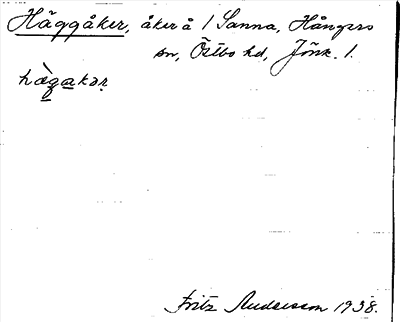 Häggåker, åker å 1 Sanna, Hångers
sn, Östbo hd, Jönk. l.
hägakər
Fritz Andersson 1938.